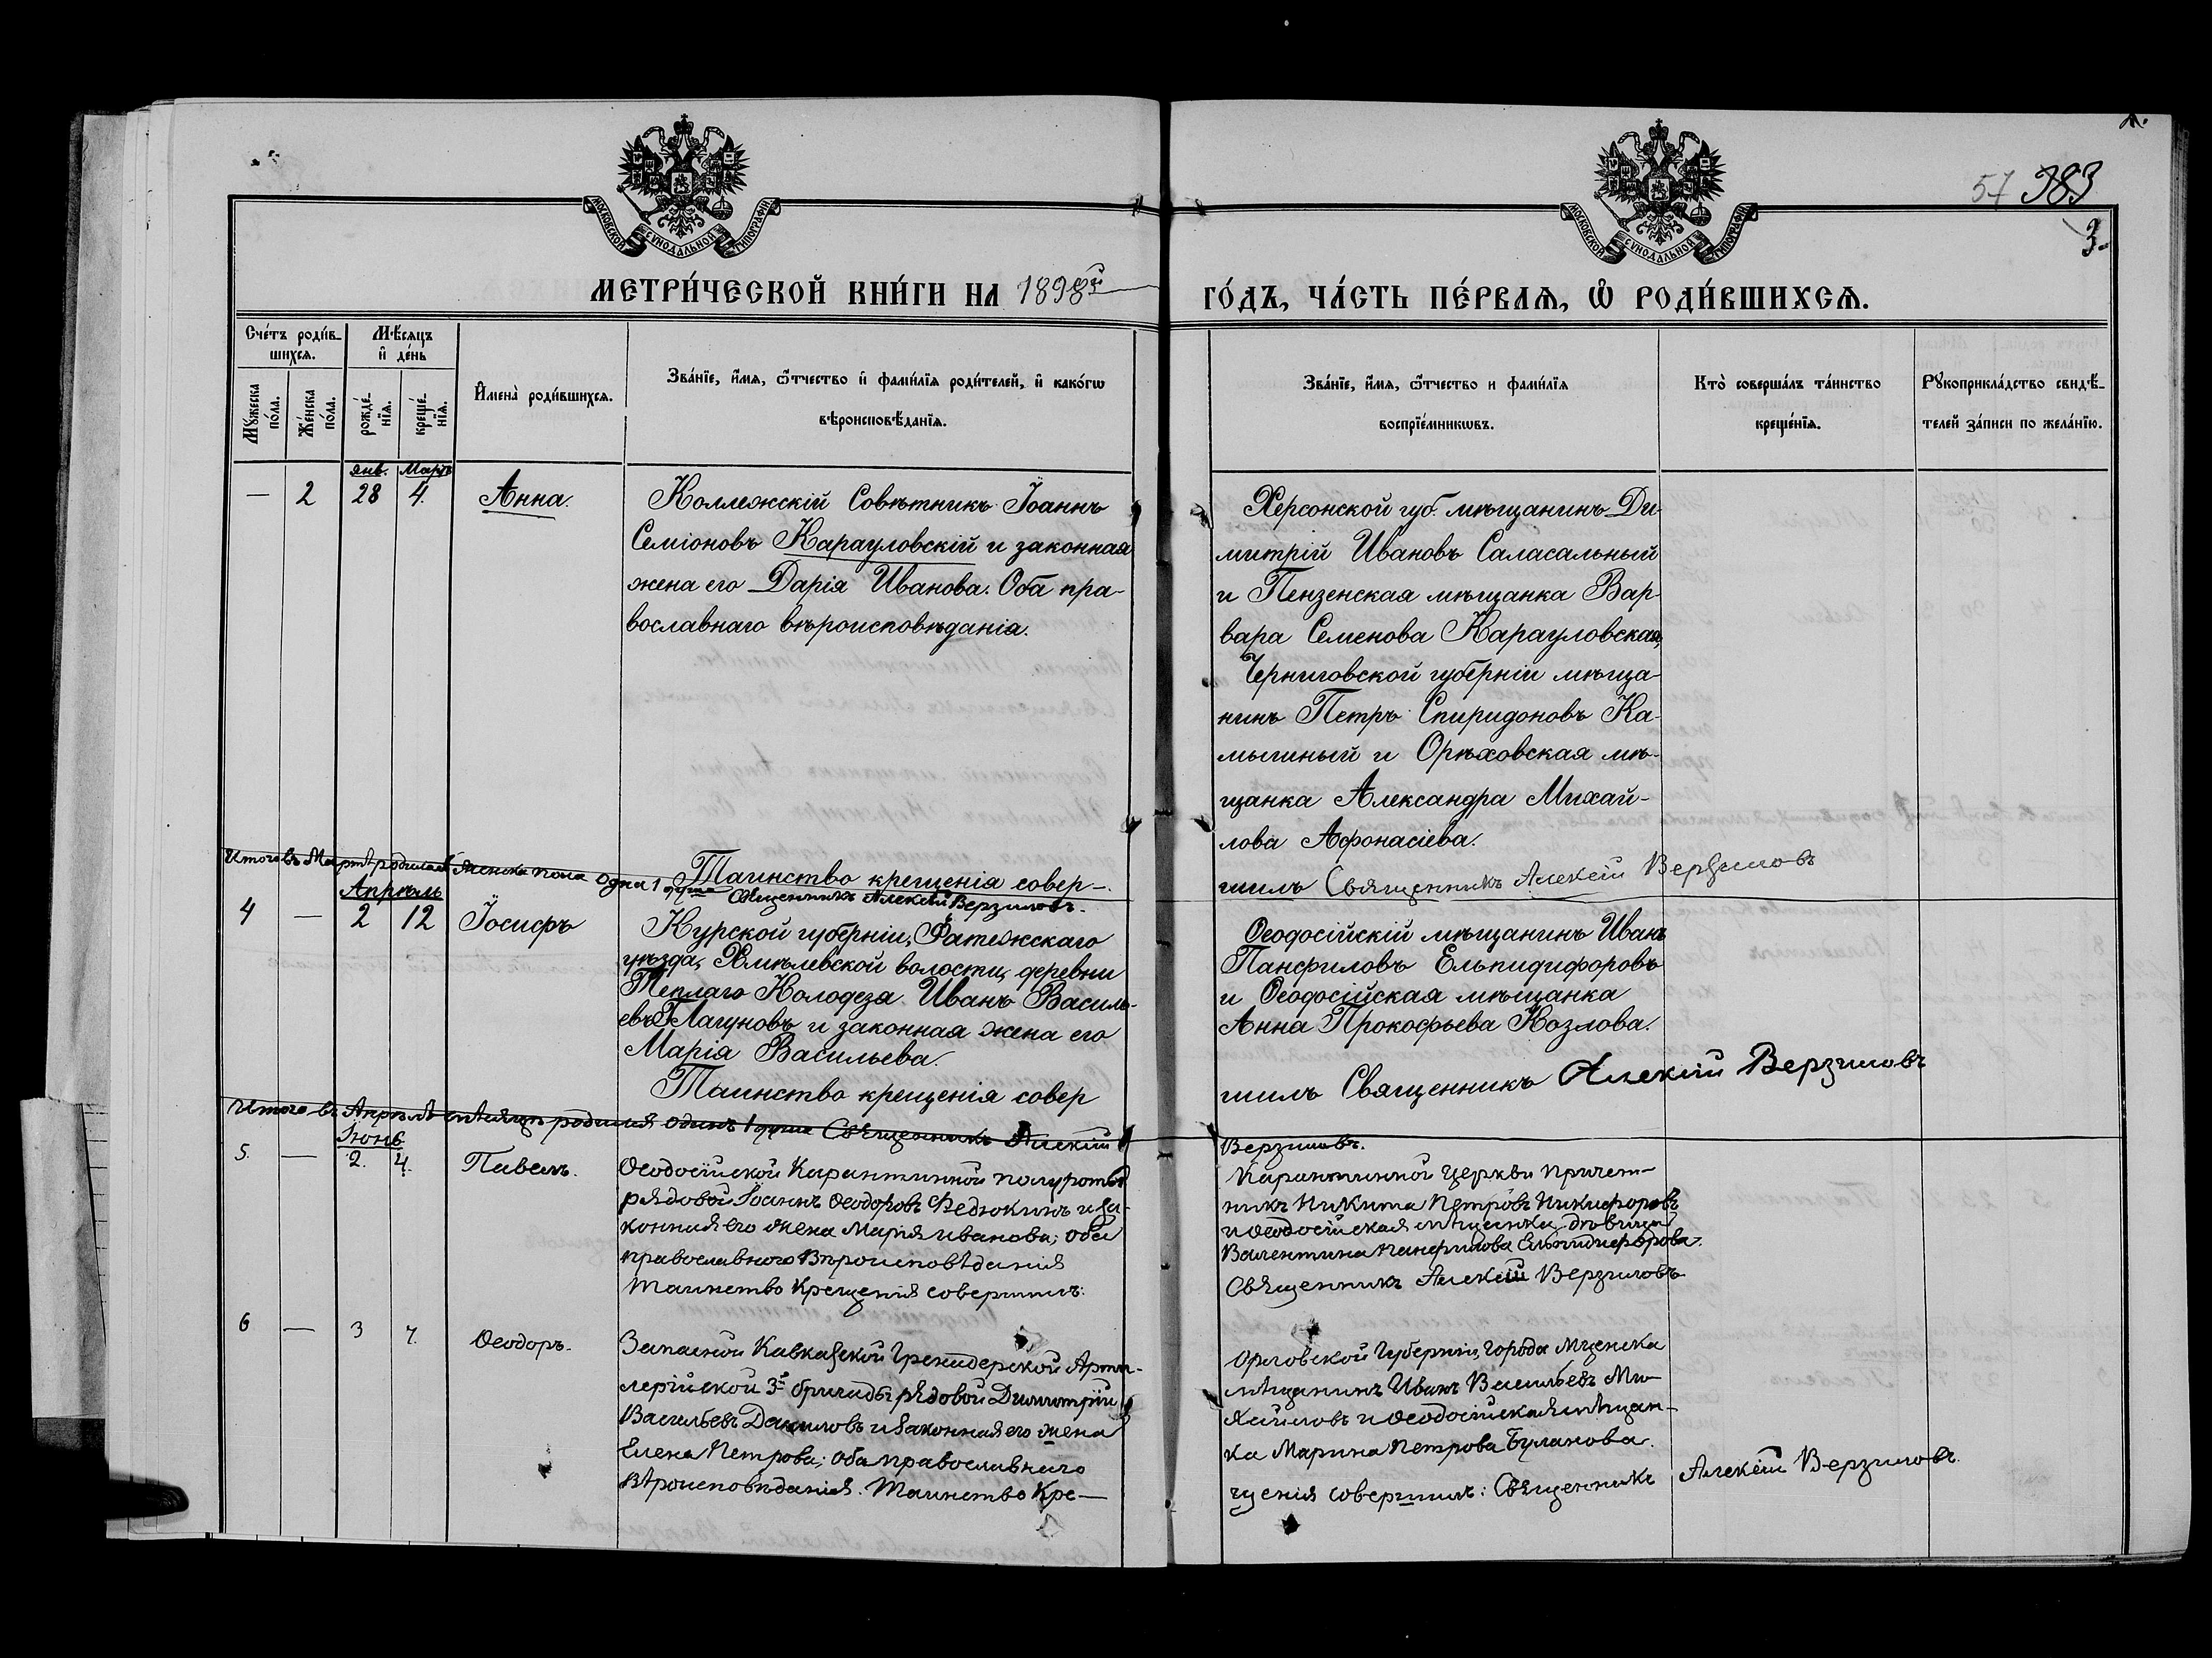 57 383
3.
МОСКОВСКОЙ СѴНОДАЛЬНОЙ ТИПОГРАФІИ
МОСКОВСКОЙ СѴНОДАЛЬНОЙ ТИПОГРАФІИ
МЕТРИ́ЧЕСКОЙ КНИ́ГИ НА 1898й
ГО́ДЪ, ЧА́СТЬ ПЕ́РВАѦ, Ѡ҆ РОДИ́ВШИХСѦ.
Сче́тъ роди́в-
шихсѧ.
Мѣ́сѧцъ
и҆ де́нь
Мꙋ́жеска
по́ла.
Же́нска
по́ла.
рожде́-
нїѧ.
креще́-
нїѧ.
И҆мена̀ роди́вшихсѧ.
Зва́нїе, и҆́мѧ, ѻ҆́тчество и҆ фами́лїѧ роди́телей, и҆ како́гѡ
вѣроисповѣ́данїѧ.
Зва́нїе, и҆́мѧ, ѻ҆́тчество и фами́лїѧ
воспрїе́мникѡвъ.
Кто̀ соверша́лъ та́инство
креще́нїѧ.
Рꙋкоприкла́дство свидѣ́-
телей за́писи по жела́нїю.
янв. Мартъ
— 2 28 4. Анна.
Коллежскій Совѣтникъ Іоаннъ
Семіоновъ Карауловскій и законная
жена его Дарія Иванова. Оба пра-
вославнаго вѣроисповѣданія.
Херсонской губ. мѣщанинъ Ди-
митрій Ивановъ Саласальный
и Пензенская мѣщанка Вар-
вара Семенова Карауловская,
Черниговской губерніи мѣща-
нинъ Петръ Спиридоновъ Ка-
мышный и Орѣховская мѣ-
щанка Александра Михай-
лова Афонасіева.
Таинство крещенія совер-
шилъ Священникъ Алексій Верзиловъ
Итого въ Мартѣ родилась женска пола одна 1 душа
Священникъ Алексій Верзиловъ.
Апрѣль
4 — 2 12 Іосифъ
Курской губерніи, Фатежскаго
уѣзда, Хмѣлевской волости, деревни
Теплаго Колодезя Иванъ Василь-
евъ Лагуновъ и законная жена его
Марія Васильева.
Таинство крещенія совер
Ѳеодосійскій мѣщанинъ Иванъ
Панфиловъ Ельпидифоровъ
и Ѳеодосійская мѣщанка
Анна Прокофьева Козлова.
шилъ Священникъ Алексій Верзиловъ
Итого въ Апрѣлѣ мѣсяцѣ родился одинъ 1 душа Священникъ Алексій
Верзиловъ.
Іюнь
5. — 2. 4. Павелъ.
Ѳеодосійской Карантинной полуроты
рядовой Іоаннъ Ѳеодоровъ Федюкинъ и за-
конная его жена Марія Иванова; оба
православного вѣроисповѣданія
Таинство Крещенія совершилъ:
Карантинной церкви причет-
никъ Никита Петровъ Никифоровъ
и Ѳеодосійская мѣщанка, дѣвица
Валентина Панфилова Ельпидифорова.
Священникъ Алексій Верзиловъ
6 — 3 7. Ѳеодоръ.
Запасной Кавказской Гренадерской Арти-
лерійской 3й бригады рядовой Димитрій
Васильевъ Даниловъ и законная его жена
Елена Петрова; оба православнаго
вѣроисповѣданія. Таинство Кре-
Орловской Губерніи, города Мценска
мѣщанинъ Иванъ Васильевъ Ми-
хайловъ и Ѳеодосійская мѣщан-
ка Марина Петрова Буланова.
щенія совершилъ: Священникъ Алексій Верзиловъ.